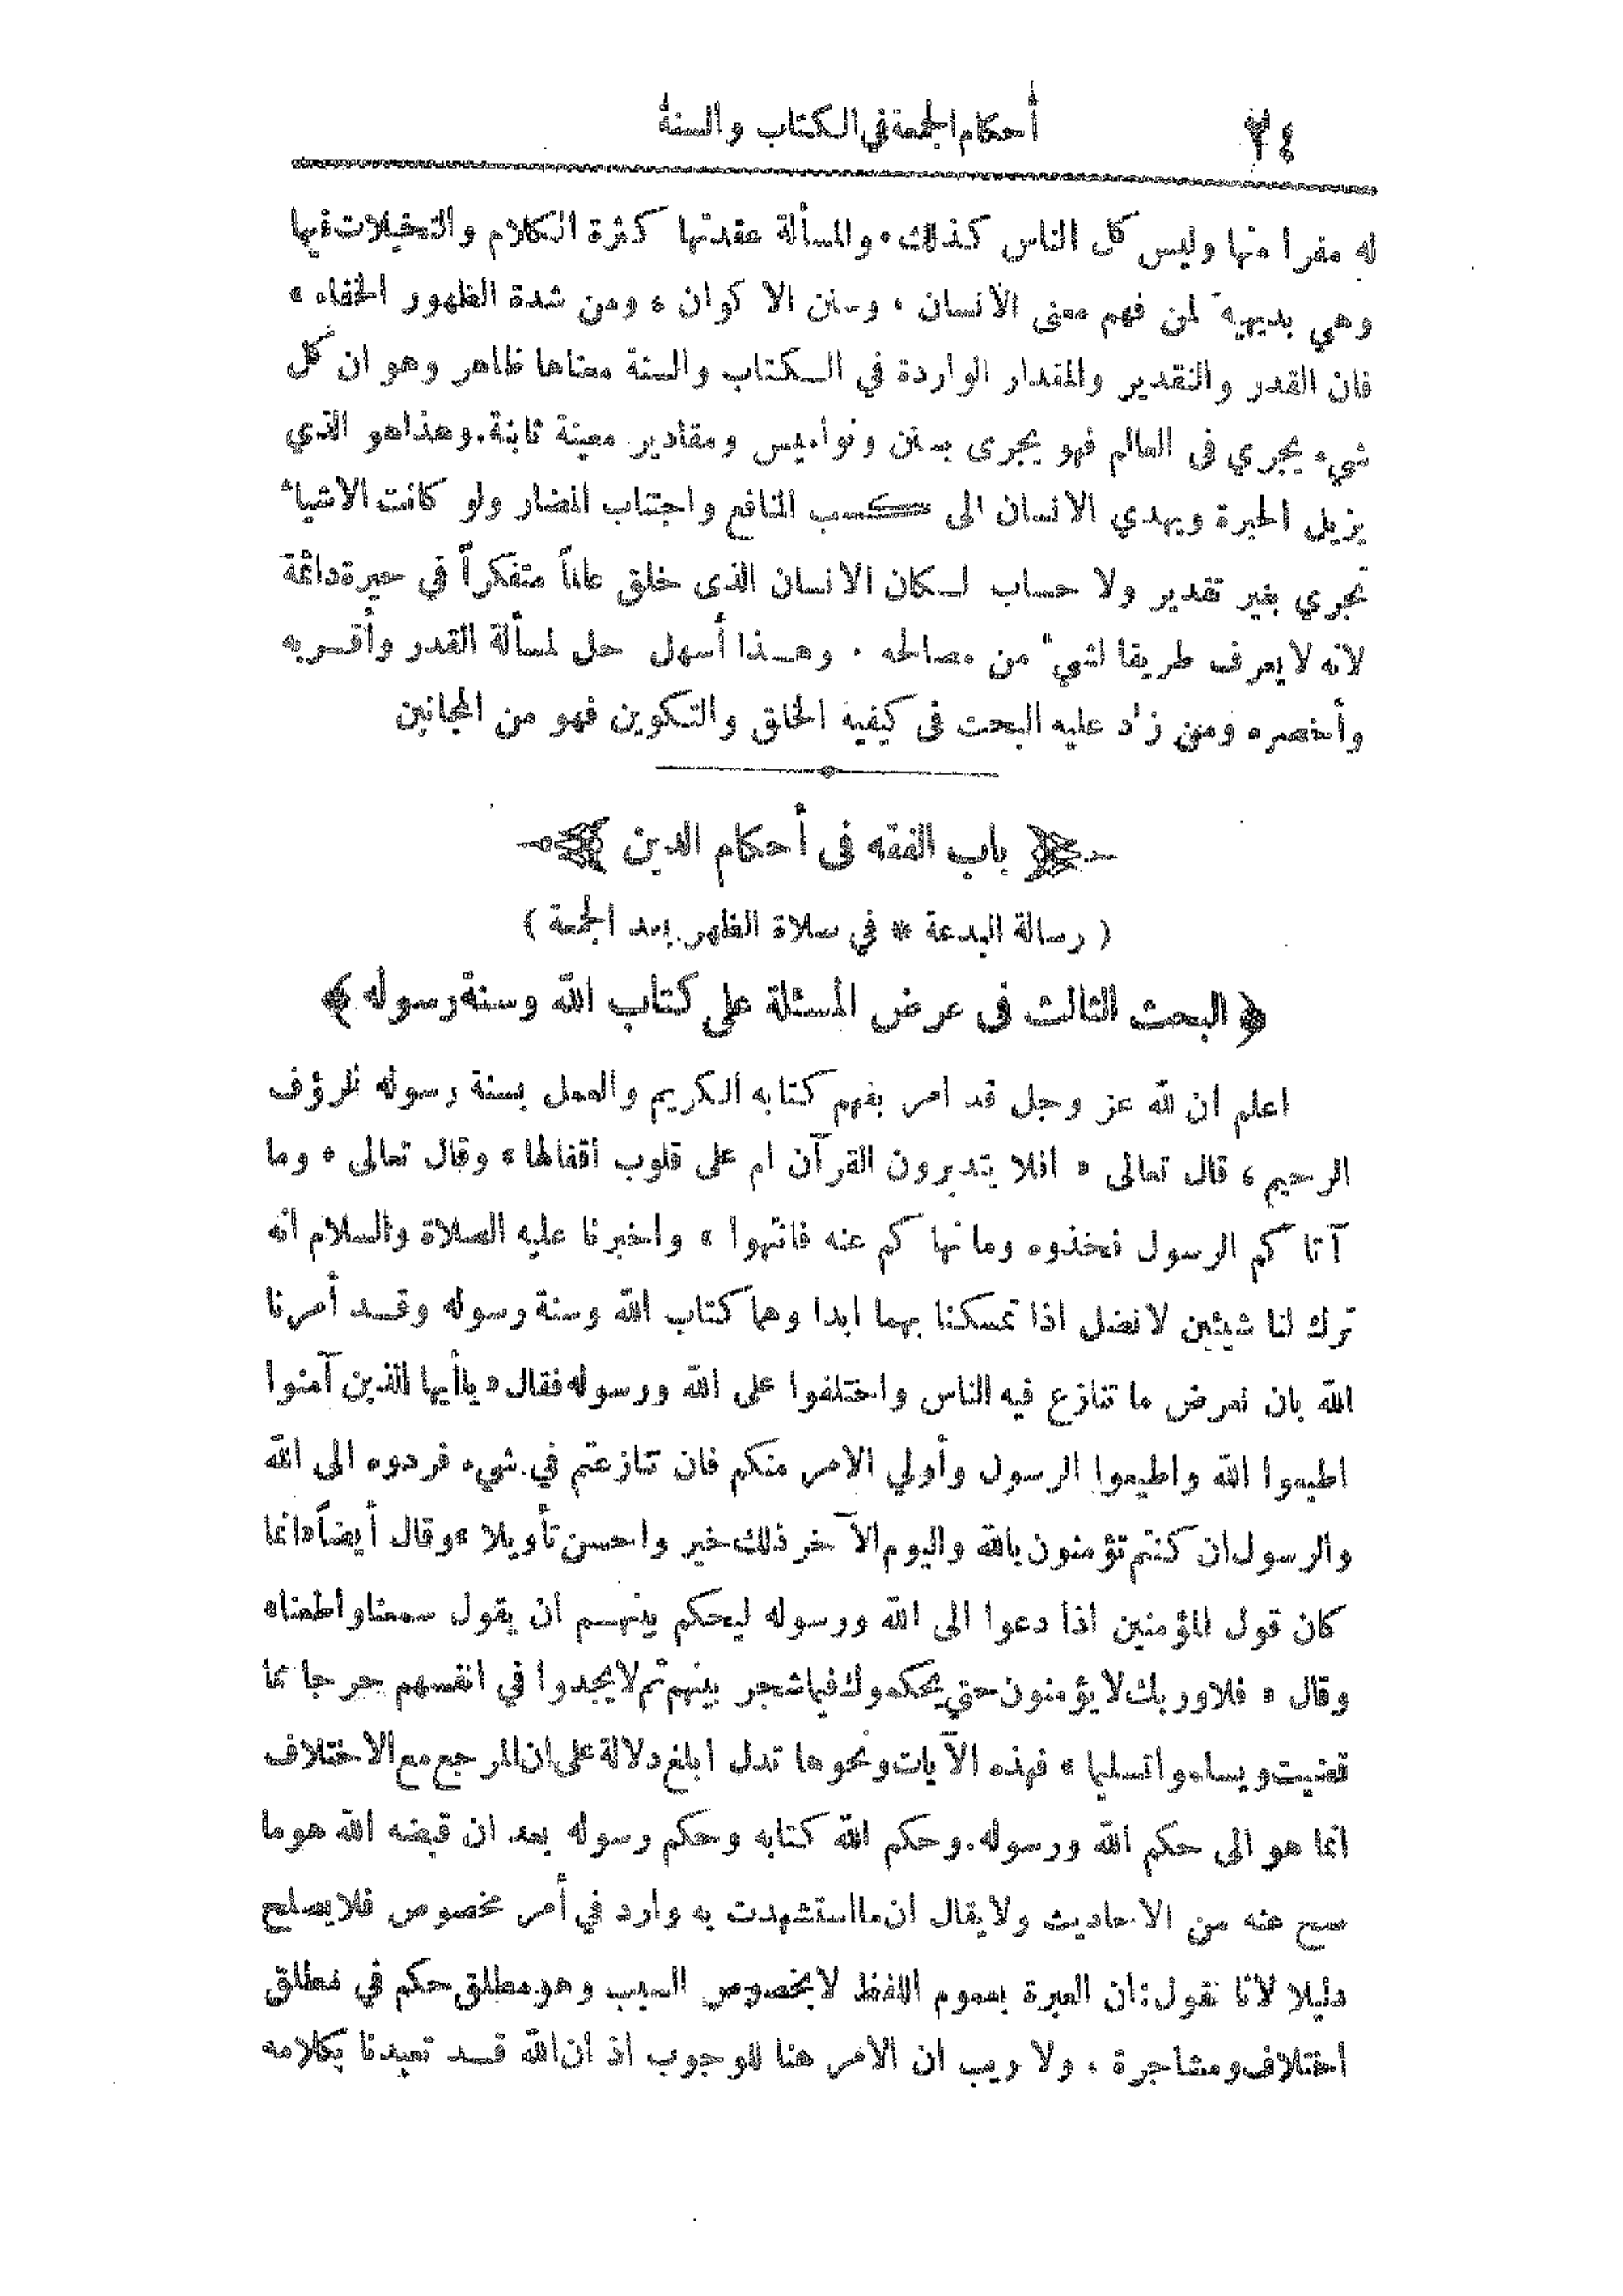 ٢٤
أحكام الجمعة في الكتاب والسنة
له مفرا منها وليس كل الناس كذلك. والمسألة عقدتها كثرة الكلام والتخيلات فيها
وهي بديهية لمن فهم معنى الانسان ، وسنن الا كوان ، ومن شدة الظهور الخفاء ،
فان القدر والتقدير والمقدار الواردة في الكتاب والسنة معناها ظاهر وهو ان كل
شيء يجري في العالم فهو يجرى بسنن ونواميس ومقادير معينة ثابتة. وهذا هو الذي
يزيل الحيرة ويهدي الانسان الى كسب المنافع واجتناب المضار ولو كانت الاشياء
تجري بغير تقدير ولا حساب لكان الانسان الذى خلق عالماً متفكراً في حيرة دائمة
لانه لا يعرف طريقا لشيء من مصالحه . وهذا أسهل حل لمسألة القدر وأقربه
وأخصره ومن زاد عليه البحث في كيفية الخلق والتكوين فهو من المجانين
باب الفقه في أحكام الدين
( رسالة البدعة * في صلاة الظهر بعد الجمعة )
﴿ البحث الثالث في عرض المسئلة على كتاب الله وسنة رسوله ﴾
اعلم ان لله عز وجل قد امر بفهم كتابه الكريم والعمل بسنة رسوله الرؤف
الرحيم ، قال تعالى « افلا يتدبرون القرآن ام على قلوب اقفالها » وقال تعالى « وما
آتا كم الرسول فخذوه وما نها كم عنه فانتهوا » واخبرنا عليه الصلاة والسلام انه
ترك لنا شيئين لا نضل اذا تمسكنا بهما ابدا وهما كتاب الله وسنة رسوله وقد أمرنا
الله بان نعرض ما تنازع فيه الناس واختلفوا على الله ورسوله فقال « ياأيها الذين آمنوا
اطيعوا الله واطيعوا الرسول وأولي الامر منكم فان تنازعتم في شيء فردوه الى الله
والرسول ان كنتم تؤمنون بالله واليوم الآ خر ذلك خير واحسن تأويلا » وقال أيضاً « انما
كان قول المؤمنين اذا دعوا الى الله ورسوله ليحكم بينهم ان يقول سمعنا واطعنا »
وقال « فلا وربك لا يؤمنون حتى يحكموك فيما شجر بينهم ثم لا يجدوا في انفسهم حرجا مما
قضيت ويسلموا تسليما » فهذه الآ يات ونحوها تدل ابلغ دلالة على ان المرجع مع الاختلاف
انما هو الى حكم الله ورسوله. وحكم الله كتابه وحكم رسوله بعد ان قبضه الله هو ما
صح عنه من الاحاديث ولا يقال ان ما استشهدت به وارد في أمر مخصوص فلا يصلح
دليلا لأنا نقول : ان العبرة بعموم اللفظ لا بخصوص السبب وهو مطلق حكم في مطلق
اختلاف ومشاجرة ، ولا ريب ان الامر هنا للوجوب اذ ان الله قد تعبدنا بكلامه